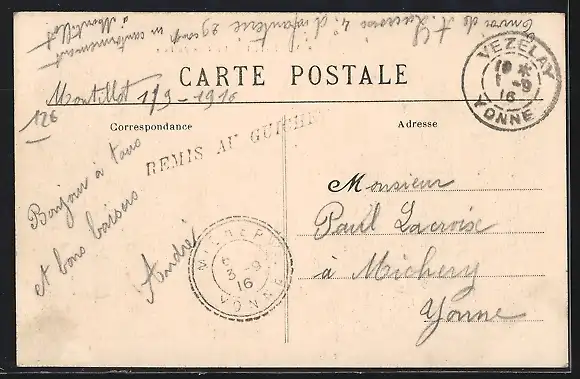 Envoi de A. Lacroix 4e d'infanterie 29 comp en cantonnement
à Montillot
CARTE POSTALE
Montillot 1/9-1916
126
Correspondance
REMIS AU GUICHET
Bonjour à tous
et bons baisers
André
MICHERY
3 -9
16
YONNE
VEZELAY
1 -9
16
YONNE
Adresse
Monsieur
Paul Lacroix
à Michery
Yonne